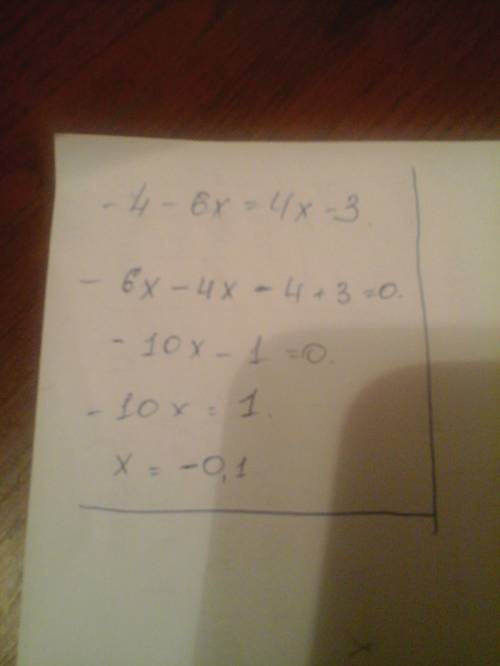 -4 - 6x = 4x - 3.
- 6x - 4x - 4 + 3 = 0.
- 10x - 1 = 0.
- 10x = 1.
x = -0,1